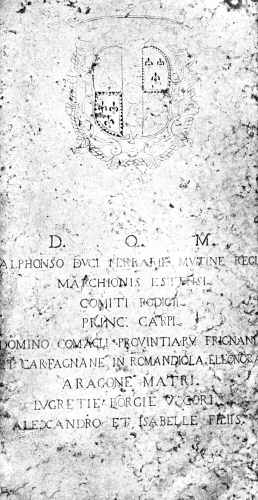 D. O. M.
ALPHONSO DUCI FERRARIE MUTINE REGI
MARCHIONIS ESTENSI.
COMITI RODIGII.
PRINC. CARPI.
DOMINO COMACLI PROVINTIARV FRIGNANI
ET CARFAGNANE IN ROMANDIOLA ELEONORA
ARAGONE MATRI.
LVCRETIE BORGIE VXORI
ALEXANDRO ET ISABELLE FILIIS